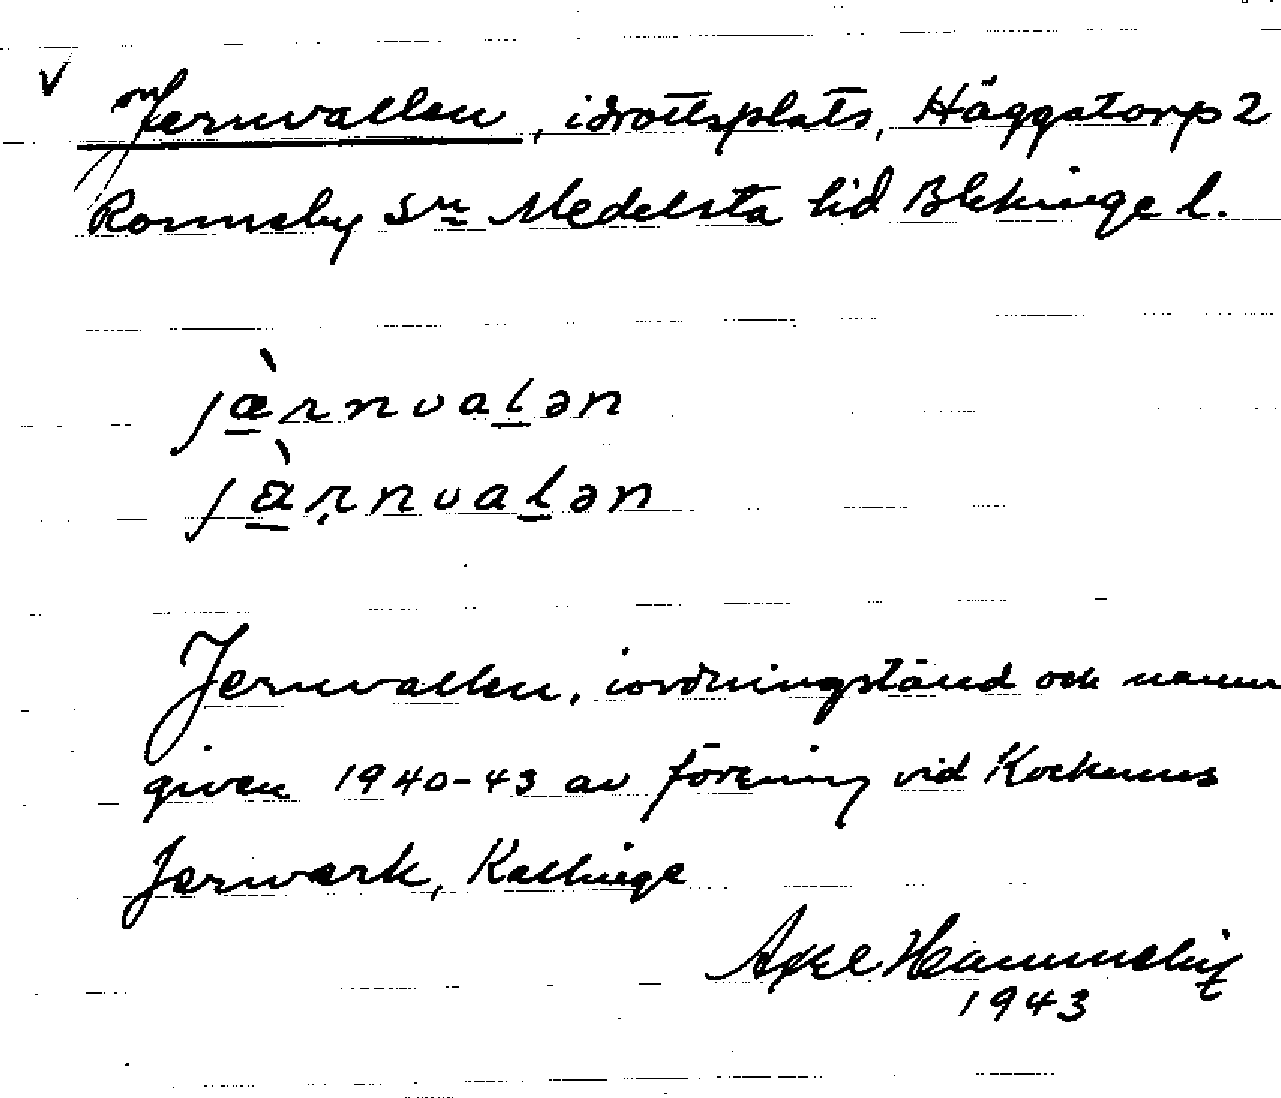 V Jernvallen, idrottsplats, Häggatorp 2
Ronneby sn Medelsta hd Blekinge l.
jæ̀rnvalən
jàrnvalən
Jernvallen, iordningstäld och namn
given 1940-43 av förening vid Kockums
Jernverk, Kallinge
Axel
1943